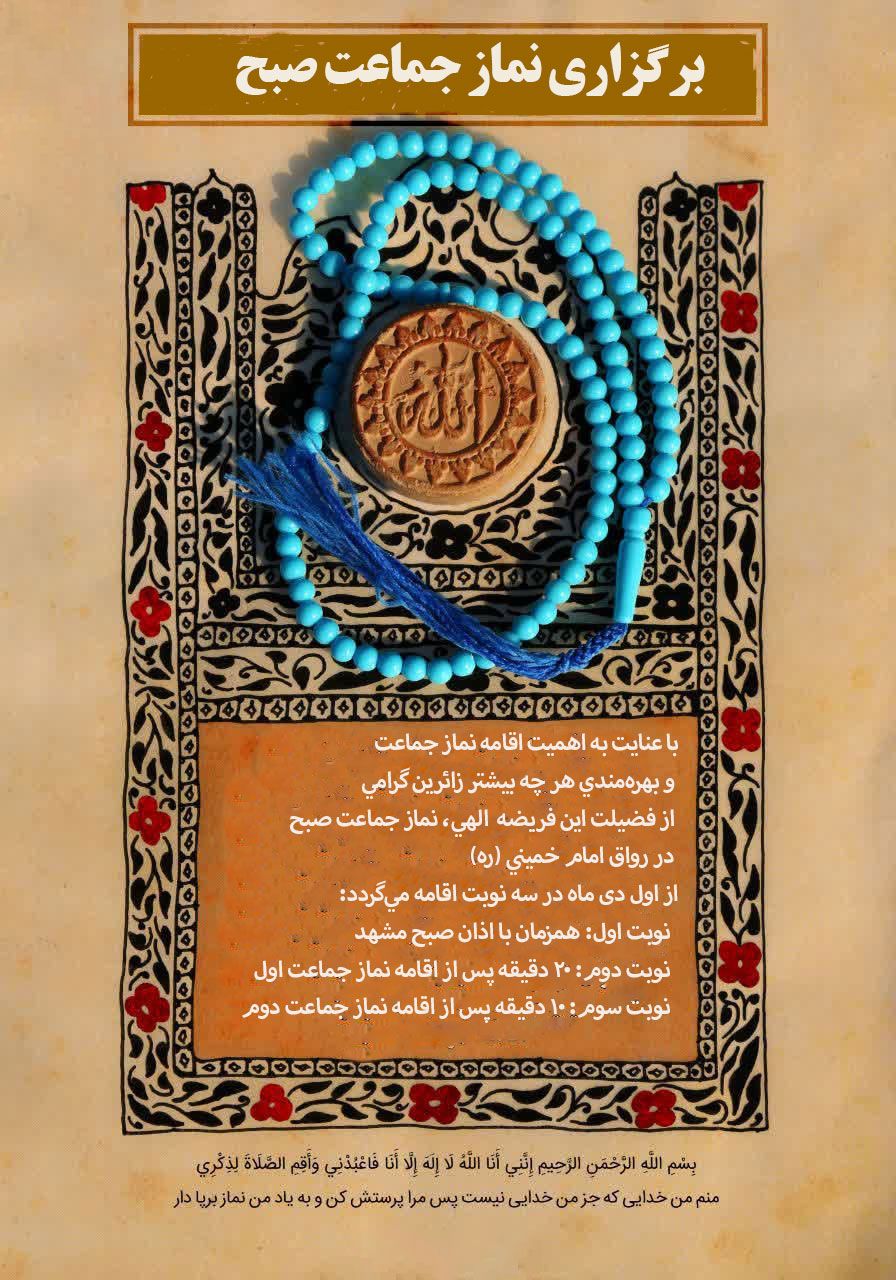 برگزاری نماز جماعت صبح
الله
با عنایت به اهمیت اقامه نماز جماعت
و بهره‌مندي هر چه بیشتر زائرین گرامي
از فضیلت این فریضه الهي، نماز جماعت صبح
در رواق امام خمیني (ره)
از اول دی ماه در سه نوبت اقامه مي‌گردد:
نوبت اول: همزمان با اذان صبح مشهد
نوبت دوم: ۲۰ دقیقه پس از اقامه نماز جماعت اول
نوبت سوم: ۱۰ دقیقه پس از اقامه نماز جماعت دوم
بِسْمِ اللَّهِ الرَّحْمَنِ الرَّحِيمِ إِنَّنِي أَنَا اللَّهُ لَا إِلَهَ إِلَّا أَنَا فَاعْبُدْنِي وَأَقِمِ الصَّلَاةَ لِذِكْرِي
منم من خدایی که جز من خدایی نیست پس مرا پرستش کن و به یاد من نماز برپا دار